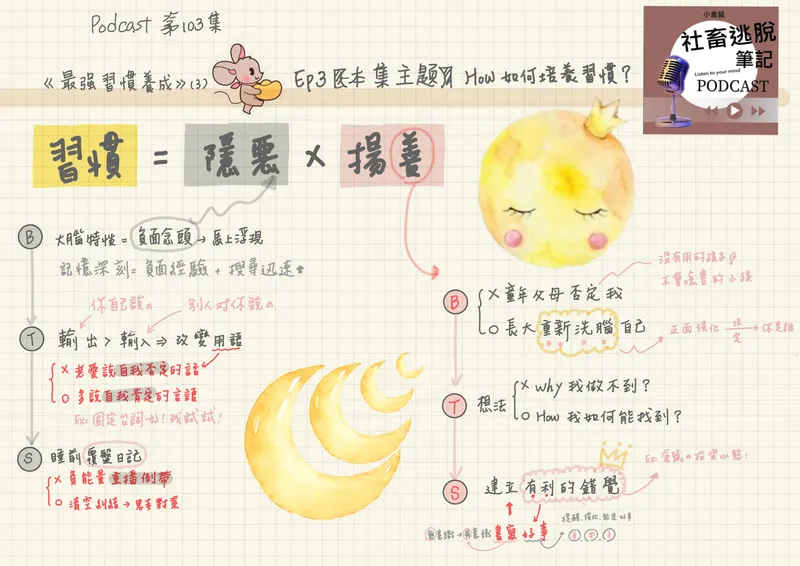 Podcast 第103集
《最强習慣養成》(3)
Ep3 本集主題 How 如何培養習慣?
小倉鼠
社畜逃脫
筆記
Listen to your mind
PODCAST
習慣 = 隱惡 × 揚善
B 大腦特性 = 負面念頭 → 馬上浮現
記憶深刻 = 負面經驗 + 搜尋迅速
你自己說的 別人對你說的
T 輸出 > 輸入 ⇒ 改變用語
× 老愛說自我否定的話
○ 多說自我肯定的言語
Ex: 固定台詞 好! 我試試!
S 睡前覆盤日記
× 負能量直播倒帶
○ 清空糾結 → 思考對策
沒有用的孩子?
不會唸書的小孩
B × 童年父母否定我
○ 長大重新洗腦自己
正面強化 決定 你是誰
T 想法 × Why 我做不到?
○ How 我如何能找到?
S 建立有利的錯覺
Ex: 倉鼠の投資心態!
書寫好事